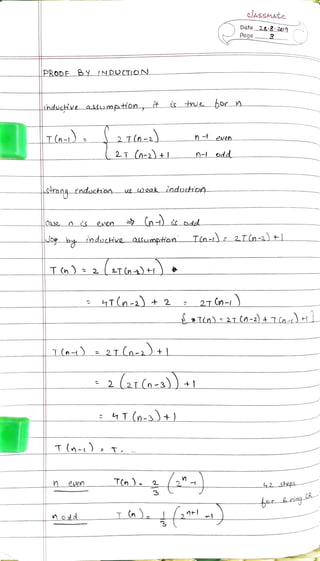 classmate
Date 28-8-2019
Page 3
PROOF BY INDUCTION
inductive assumption, it is true for n
T(n-1) = { 2T(n-2) n-1 even
2T(n-2)+1 n-1 odd
strong induction vs weak induction
case n is even ⇒ (n-1) is odd
by inductive assumption T(n-1) = 2T(n-2)+1
T(n) = 2(2T(n-2)+1)
= 4T(n-2) + 2 = 2T(n-1)
[T(n) = 2T(n-2) + T(n-1)+1]
T(n-1) = 2T(n-2)+1
= 2(2T(n-3))+1
= 4T(n-3)+1
T(n-1) = T.
n even T(n) = 2/3 (2ⁿ-1)
42 steps
for 6 ring
n odd T(n) = 1/3 (2ⁿ⁺¹-1)